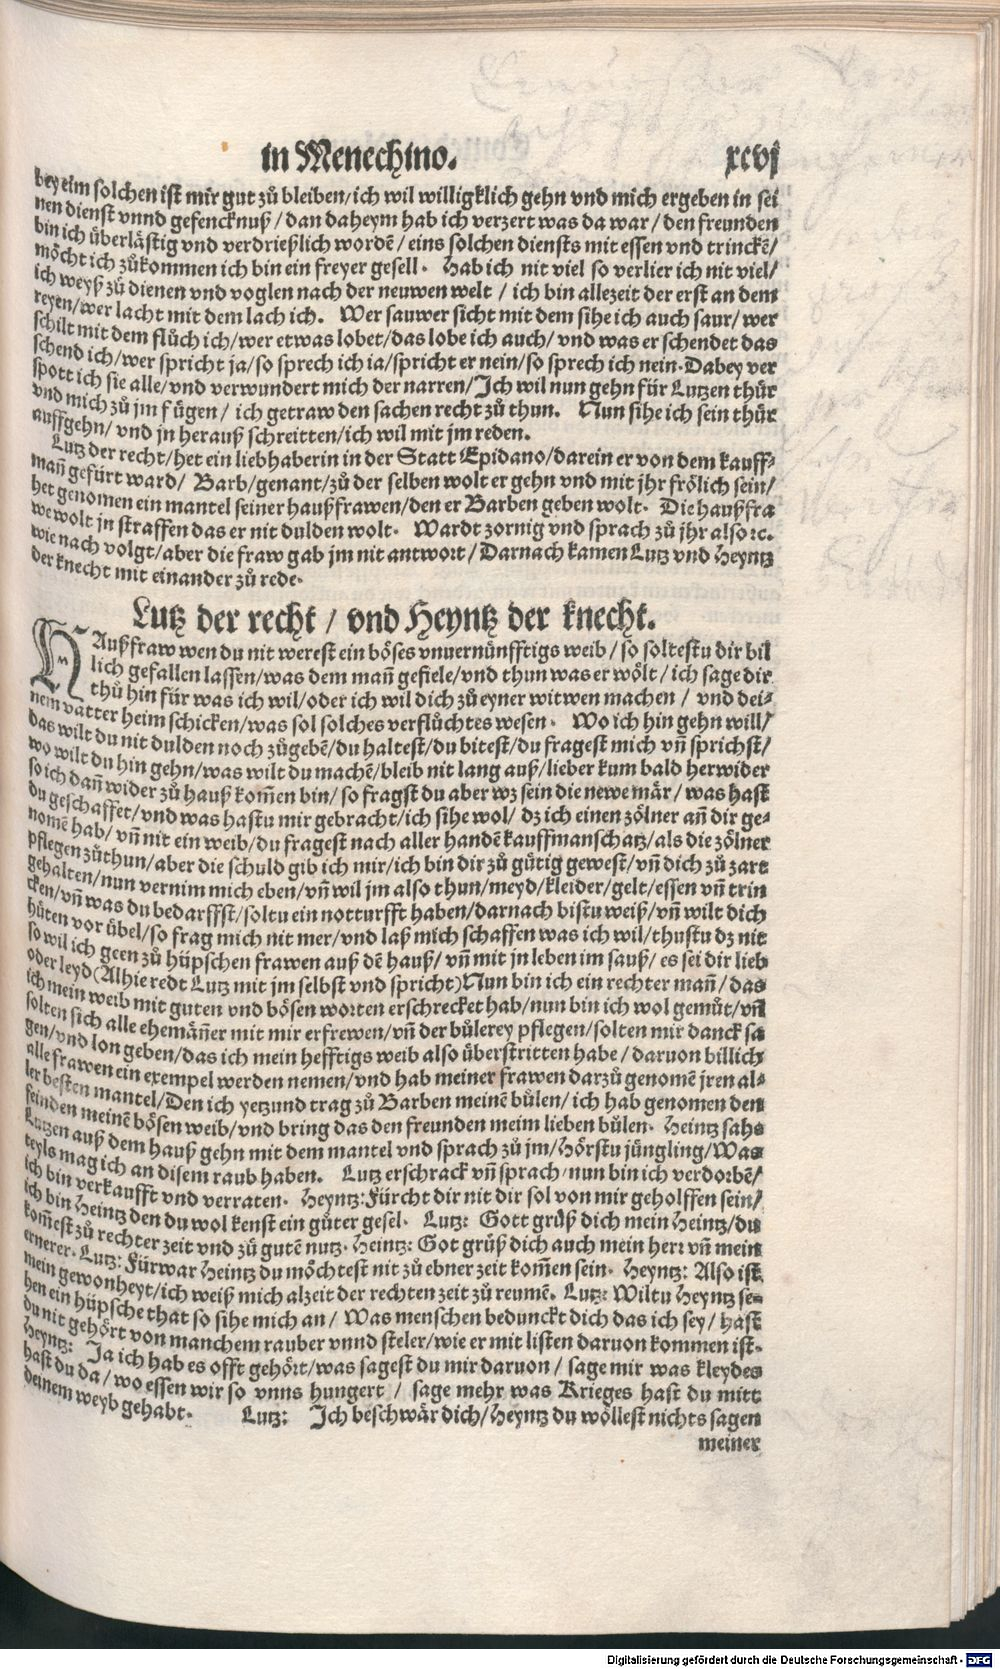 in Menechino. xcvj
bey eim solchen ist mir gut zů bleiben/ich wil willigklich gehn vnd mich ergeben in sei
nen dienst vnnd gefencknuß/dan daheym hab ich verzert was da war/den freunden
bin ich überlåstig vnd verdrießlich wordē/eins solchen diensts mit essen vnd trinckē/
möcht ich zůkommen ich bin ein freyer gesell. Hab ich nit viel so verlier ich nit viel/
ich weyß zů dienen vnd voglen nach der neuwen welt/ich bin allezeit der erst an dem
reyen/wer lacht mit dem lach ich. Wer sauwer sicht mit dem sihe ich auch saur/wer
schilt mit dem flůch ich/wer etwas lobet/das lobe ich auch/vnd was er schendet das
schend ich/wer spricht ja/so sprech ich ia/spricht er nein/so sprech ich nein. Dabey ver
spott ich sie alle/vnd verwundert mich der narren/Ich wil nun gehn für Lutzen thür
vnd mich zů jm fügen/ich getraw den sachen recht zů thun. Nun sihe ich sein thür
auffgehn/vnd jn herauß schreitten/ich wil mit jm reden.
Lutz der recht/het ein liebhaberin in der Statt Epidano/darein er von dem kauff⸗
mañ gefürt ward/Barb/genant/zů der selben wolt er gehn vnd mit jhr frölich sein/
het genomen ein mantel seiner haußfrawen/den er Barben geben wolt. Die haußfra
we wolt jn straffen das er nit dulden wolt. Wardt zornig vnd sprach zů jhr also ꝛc.
wie nach volgt/aber die fraw gab jm nit antwort/Darnach kamen Lutz vnd Heyntz
der knecht mit einander zů rede.
Lutz der recht/vnd Heyntz der knecht.
HAußfraw wen du nit werest ein böses vnuernünfftigs weib/so soltestu dir bil
lich gefallen lassen/was dem mañ gefiele/vnd thun was er wölt/ich sage dir
thů hin für was ich wil/oder ich wil dich zů eyner witwen machen/vnd dei⸗
nem vatter heim schicken/was sol solches verflůchtes wesen. Wo ich hin gehn will/
das wilt du nit dulden noch zůgebē/du haltest/du bitest/du fragest mich vñ sprichst/
wo wilt du hin gehn/was wilt du machē/bleib nit lang auß/lieber kum bald herwider
so ich dañ wider zů hauß kom̄en bin/so fragst du aber wz sein die newe mår/was hast
du geschaffet/vnd was hastu mir gebracht/ich sihe wol/dz ich einen zölner añ dir ge⸗
nomē hab/vñ nit ein weib/du fragest nach aller handē kauffmanschatz/als die zölner
pflegen zůthun/aber die schuld gib ich mir/ich bin dir zů gůtig gewest/vñ dich zů zart
gehalten/nun vernim mich eben/vñ wil jm also thun/meyd/kleider/gelt/essen vñ trin
cken/vñ was du bedarffst/soltu ein notturfft haben/darnach bistu weiß/vñ wilt dich
hůten vor übel/so frag mich nit mer/vnd laß mich schaffen was ich wil/thustu dz nit
so wil ich geen zů hüpschen frawen auß dē hauß/vñ mit jn leben im sauß/es sei dir lieb
oder leyd(Alhie redt Lutz mit jm selbst vnd spricht)Nun bin ich ein rechter mañ/das
ich mein weib mit guten vnd bösen worten erschrecket hab/nun bin ich wol gemůt/vñ
solten sich alle ehemåñer mit mir erfrewen/vñ der bůlerey pflegen/solten mir danck sa
gen/vnd lon geben/das ich mein hefftigs weib also überstritten habe/daruon billich
alle frawen ein exempel werden nemen/vnd hab meiner frawen darzů genomē jren al⸗
ler besten mantel/Den ich yetzund trag zů Barben meinē bůlen/ich hab genomen den
feinden meinē bösen weib/vnd bring das den freunden meim lieben bůlen. Heintz sahe
Lutzen auß dem hauß gehn mit dem mantel vnd sprach zů jm/Hörstu jüngling/Was
teyls mag ich an disem raub haben. Lutz erschrack vñ sprach nun bin ich verdorbē/
ich bin verkaufft vnd verraten. Heyntz:Fürcht dir nit dir sol von mir geholffen sein/
ich bin Heintz den du wol kenst ein gůter gesel. Lutz: Gott grůß dich mein Heintz/du
kom̄est zů rechter zeit vnd zů gutē nutz. Heintz: Got grůß dich auch mein herr vñ mein
ernerer. Lutz: Fürwar Heintz du möchtest nit zů ebner zeit kom̄en sein. Heyntz: Also ist
mein gewonheyt/ich weiß mich alzeit der rechten zeit zů reumē. Lutz: Wiltu Heyntz se⸗
hen ein hüpsche that so sihe mich an/Was menschen bedunckt dich das ich sey/hast
du nit gehört von manchem rauber vnnd steler/wie er mit listen daruon kommen ist.
Heyntz: Ja ich hab es offt gehört/was sagest du mir daruon/sage mir was kleydes
hast du da/wo essen wir so vnns hungert/sage mehr was Krieges hast du mitt
deinem weyb gehabt. Lutz: Ich beschwår dich/Heyntz du wöllest nichts sagen
meiner
Digitalisierung gefördert durch die Deutsche Forschungsgemeinschaft - DFG